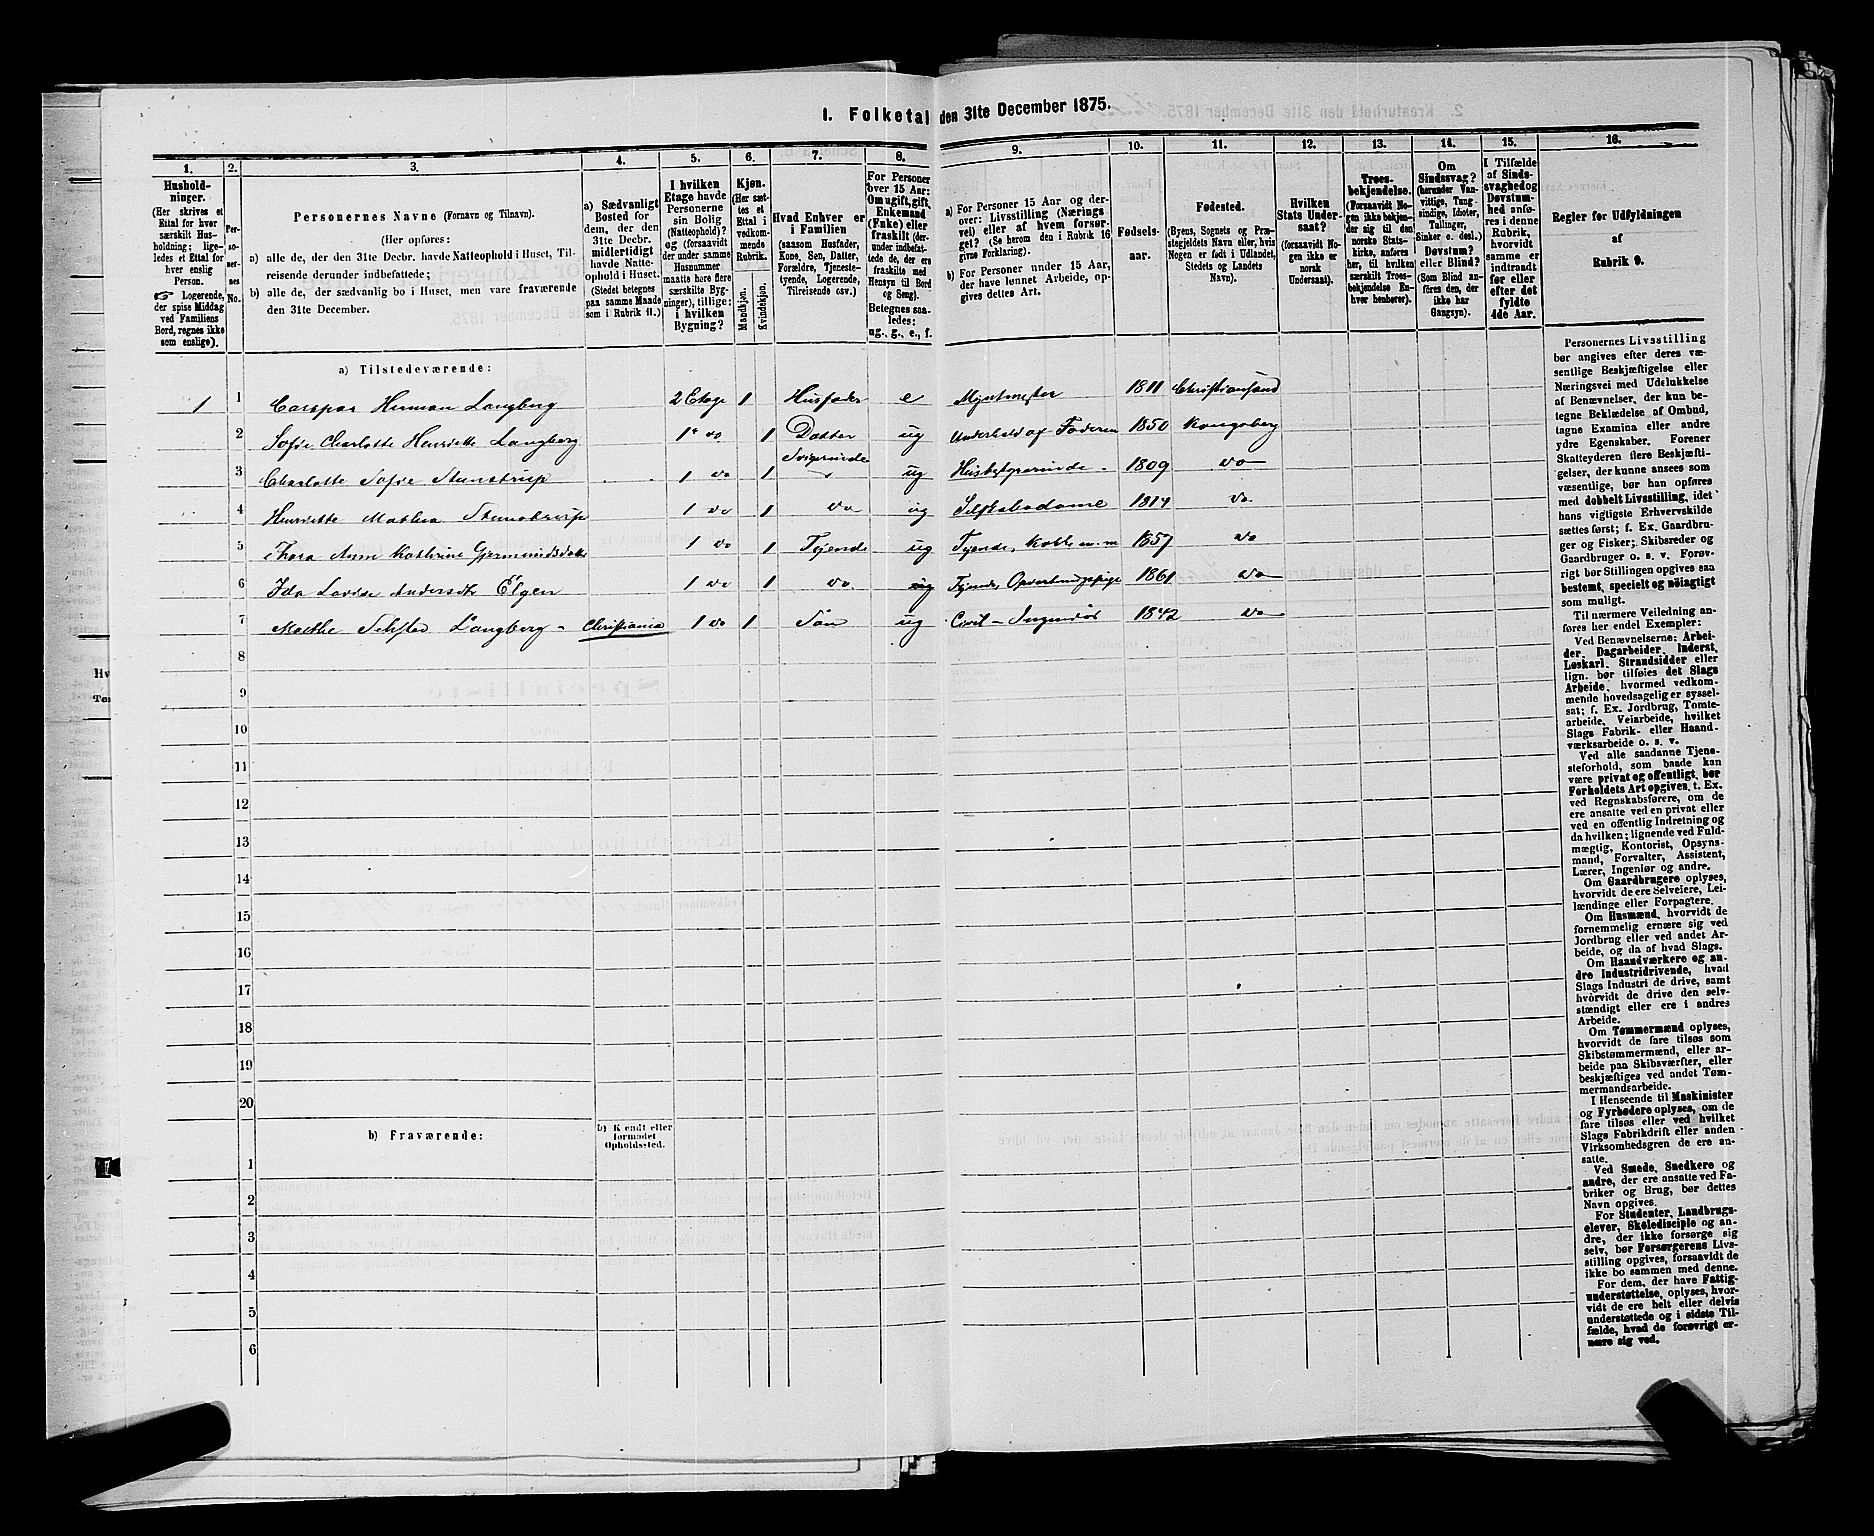 1. Folketal den 31te December 1875.
1. 2. 3. 4. 5. 6. 7. 8. 9. 10. 11. 12. 13. 14. 15. 16.
Hushold-
ninger.
(Her skrives et
Ettal for hver
særskilt Hus-
holdning; lige-
ledes et Ettal for
hver enslig
Person.
☞ Logerende,
der spise Middag
ved Familiens
Bord, regnes ikke
som enslige).
Per-
so-
ner-
nes
No.
Personernes Navne (Fornavn og Tilnavn).
(Her opføres:
a) alle de, der den 31te Decbr. havde Natteophold i Huset, Til-
reisende derunder indbefattede;
b) alle de, der sædvanlig bo i Huset, men vare fraværende
den 31te December.
a) Sædvanligt
Bosted for
dem, der den
31te Decbr.
midlertidigt
havde Natte-
ophold i Huset.
(Stedet betegnes
paa samme Maade
som i Rubrik 11.)
I hvilken
Etage havde
Personerne
sin Bolig
(Natteophold)?
og (forsaavidt
der under samme
Husnummer
maatte høre flere
særskilte Byg-
ninger), tillige:
i hvilken
Bygning?
Kjøn.
(Her sæt-
tes et
Ettal i
vedkom-
mende
Rubrik.
Mandkjøn.
Kvindekjøn.
Hvad Enhver er
i Familien
(saasom Husfader,
Kone, Søn, Datter,
Forældre, Tjeneste-
tyende, Logerende,
Tilreisende osv.)
For Personer
over 15 Aar:
Om ugift, gift,
Enkemand
(Enke) eller
fraskilt (der-
under indbefat-
tede de, der ere
fraskilte med
Hensyn til Bord
og Seng).
Betegnes saa-
ledes:
ug., g., e., f.
a) For Personer 15 Aar og der-
over: Livsstilling (Nærings-
vei) eller af hvem forsør-
get? (Se herom den i Rubrik 16
givne Forklaring).
b) For Personer under 15 Aar,
der have lønnet Arbeide, op-
gives dettes Art.
Fødsels-
aar.
Fødested.
(Byens, Sognets og Præ-
stegjeldets Navn eller, hvis
Nogen er født i Udlandet,
Stedets og Landets
Navn).
Hvilken
Stats Under-
saat?
(forsaavidt No-
gen ikke er
norsk
Undersaat).
Troes-
bekjendelse.
(Forsaavidt No-
gen ikke bekjen-
der sig til den
norske Stats-
kirke, anføres
her, til hvilken
særskilt Troes-
bekjendelse En-
hver henhører).
Om
Sindssvag?
(herunder Van-
vittige, Tung-
sindige, Idioter,
Tullinger,
Sinker o. desl.)
Døvstum?
eller Blind?
(Som Blind an-
føres den, der
ikke har
Gangsyn).
I Tilfælde
af Sinds-
svaghed og
Døvstum-
hed anfø-
res i denne
Rubrik,
hvorvidt
samme er
indtraadt
før eller
efter det
fyldte
4de Aar.
Regler for Udfyldningen
af
Rubrik 9.
a) Tilstedeværende:
1 1 Caspar Herman Langberg 2 Etage 1 Husfader e Myntmester 1811 Christiansand
2 Sofie Charlotte Henriette Langberg 1 do 1 Datter ug Underhold af Faderen 1850 Kongsberg
3 Charlotte Sofie Stenstrup 1 do 1 Svigerinde ug Husbestyrerinde 1809 do
4 Henriette Mathea Stenstrup 1 do 1 do ug Selskabsdame 1814 do
5 Thora Anne Kathrine Gjermundsdatter 1 do 1 Tjende ug Tjende, Kokke m.m 1857 do
6 Ida Lovise Andersdtr Elgen 1 do 1 do. ug Tjende, Opvartningspige 1861 do
7 Mathe Sehsted Langberg - Christiania 1 do 1 Søn ug Civil-Ingeniør 1842 do
8
9
10
11
12
13
14
15
16
17
18
19
20
b) Fraværende:
b) Kendt eller
formodet
Opholdssted.
1
2
3
4
5
6
Personernes Livsstilling
bør angives efter deres væ-
sentlige Beskjæftigelse eller
Næringsvei med Udelukkelse
af Benævnelser, der kun be-
tegne Beklædelse af Ombud,
tagne Examina eller andre
ydre Egenskaber. Forener
Skatteyderen flere Beskjæfti-
gelser, der kunne ansees som
væsentlige, bør han opføres
med dobbelt Livsstilling, idet
hans vigtigste Erhvervskilde
sættes først; f. Ex. Gaardbru-
ger og Fisker; Skibsreder og
Gaardbruger o. s. v. Forøv-
rigt bør Stillingen opgives saa
bestemt, specielt og nøiagtigt
som muligt.
Til nærmere Veiledning an-
føres her endel Exempler:
Ved Benævnelserne: Arbei-
der, Dagarbeider, Inderst,
Løskarl, Strandsidder eller
lign. bør tilføies det Slags
Arbeide, hvormed vedkom-
mende hovedsagelig er syssel-
sat; f. Ex. Jordbrug, Tomte-
arbeide, Veiarbeide, hvilket
Slags Fabrik- eller Haand-
værksarbeide o. s. v.
Ved alle saadanne Tjene-
steforhold, som baade kan
være privat og offentligt, bør
Forholdets Art opgives, t. Ex.
ved Regnskabsførere, om de
ere ansatte ved en privat eller
ved en offentlig Indretning og
da hvilken; lignende ved Fuld-
mægtig, Kontorist, Opsyns-
mand, Forvalter, Assistent,
Lærer, Ingeniør og andre.
Om Gaardbrugere oplyses,
hvorvidt de ere Selveiere, Lei-
lændinge eller Forpagtere.
Om Husmænd, hvorvidt de
fornemmelig ernære sig ved
Jordbrug eller ved andet Ar-
beide, og da af hvad Slags.
Om Haandværkere og an-
dre Industridrivende, hvad
Slags Industri de drive, samt
hvorvidt de drive den selv-
stændigt eller ere i andres
Arbeide.
Om Tømmermænd oplyses,
hvorvidt de fare tilsøs som
Skibstømmermænd, eller ar-
beide paa Skibsværfter, eller
beskjæftiges ved andet Tøm-
mermandsarbeide.
I Henseende til Maskinister
og Fyrbødere oplyses, om de
fare tilsøs eller ved hvilket
Slags Fabrikdrift eller anden
Virksomhedsgren de ere an-
satte.
Ved Smede, Snedkere og
andre, der ere ansatte ved Fa-
briker og Brug, bør dettes
Navn opgives.
For Studenter, Landbrugs-
elever, Skoledisciple og an-
dre, der ikke forsørge sig
selv, bør Forsørgerens Livs-
stilling opgives, forsaavidt de
ikke bo sammen med denne.
For dem, der have Fattig-
understøttelse, oplyses, hvor-
vidt de ere helt eller delvis
understøttede og i sidste Til-
fælde, hvad de forøvrigt er-
nære sig ved.